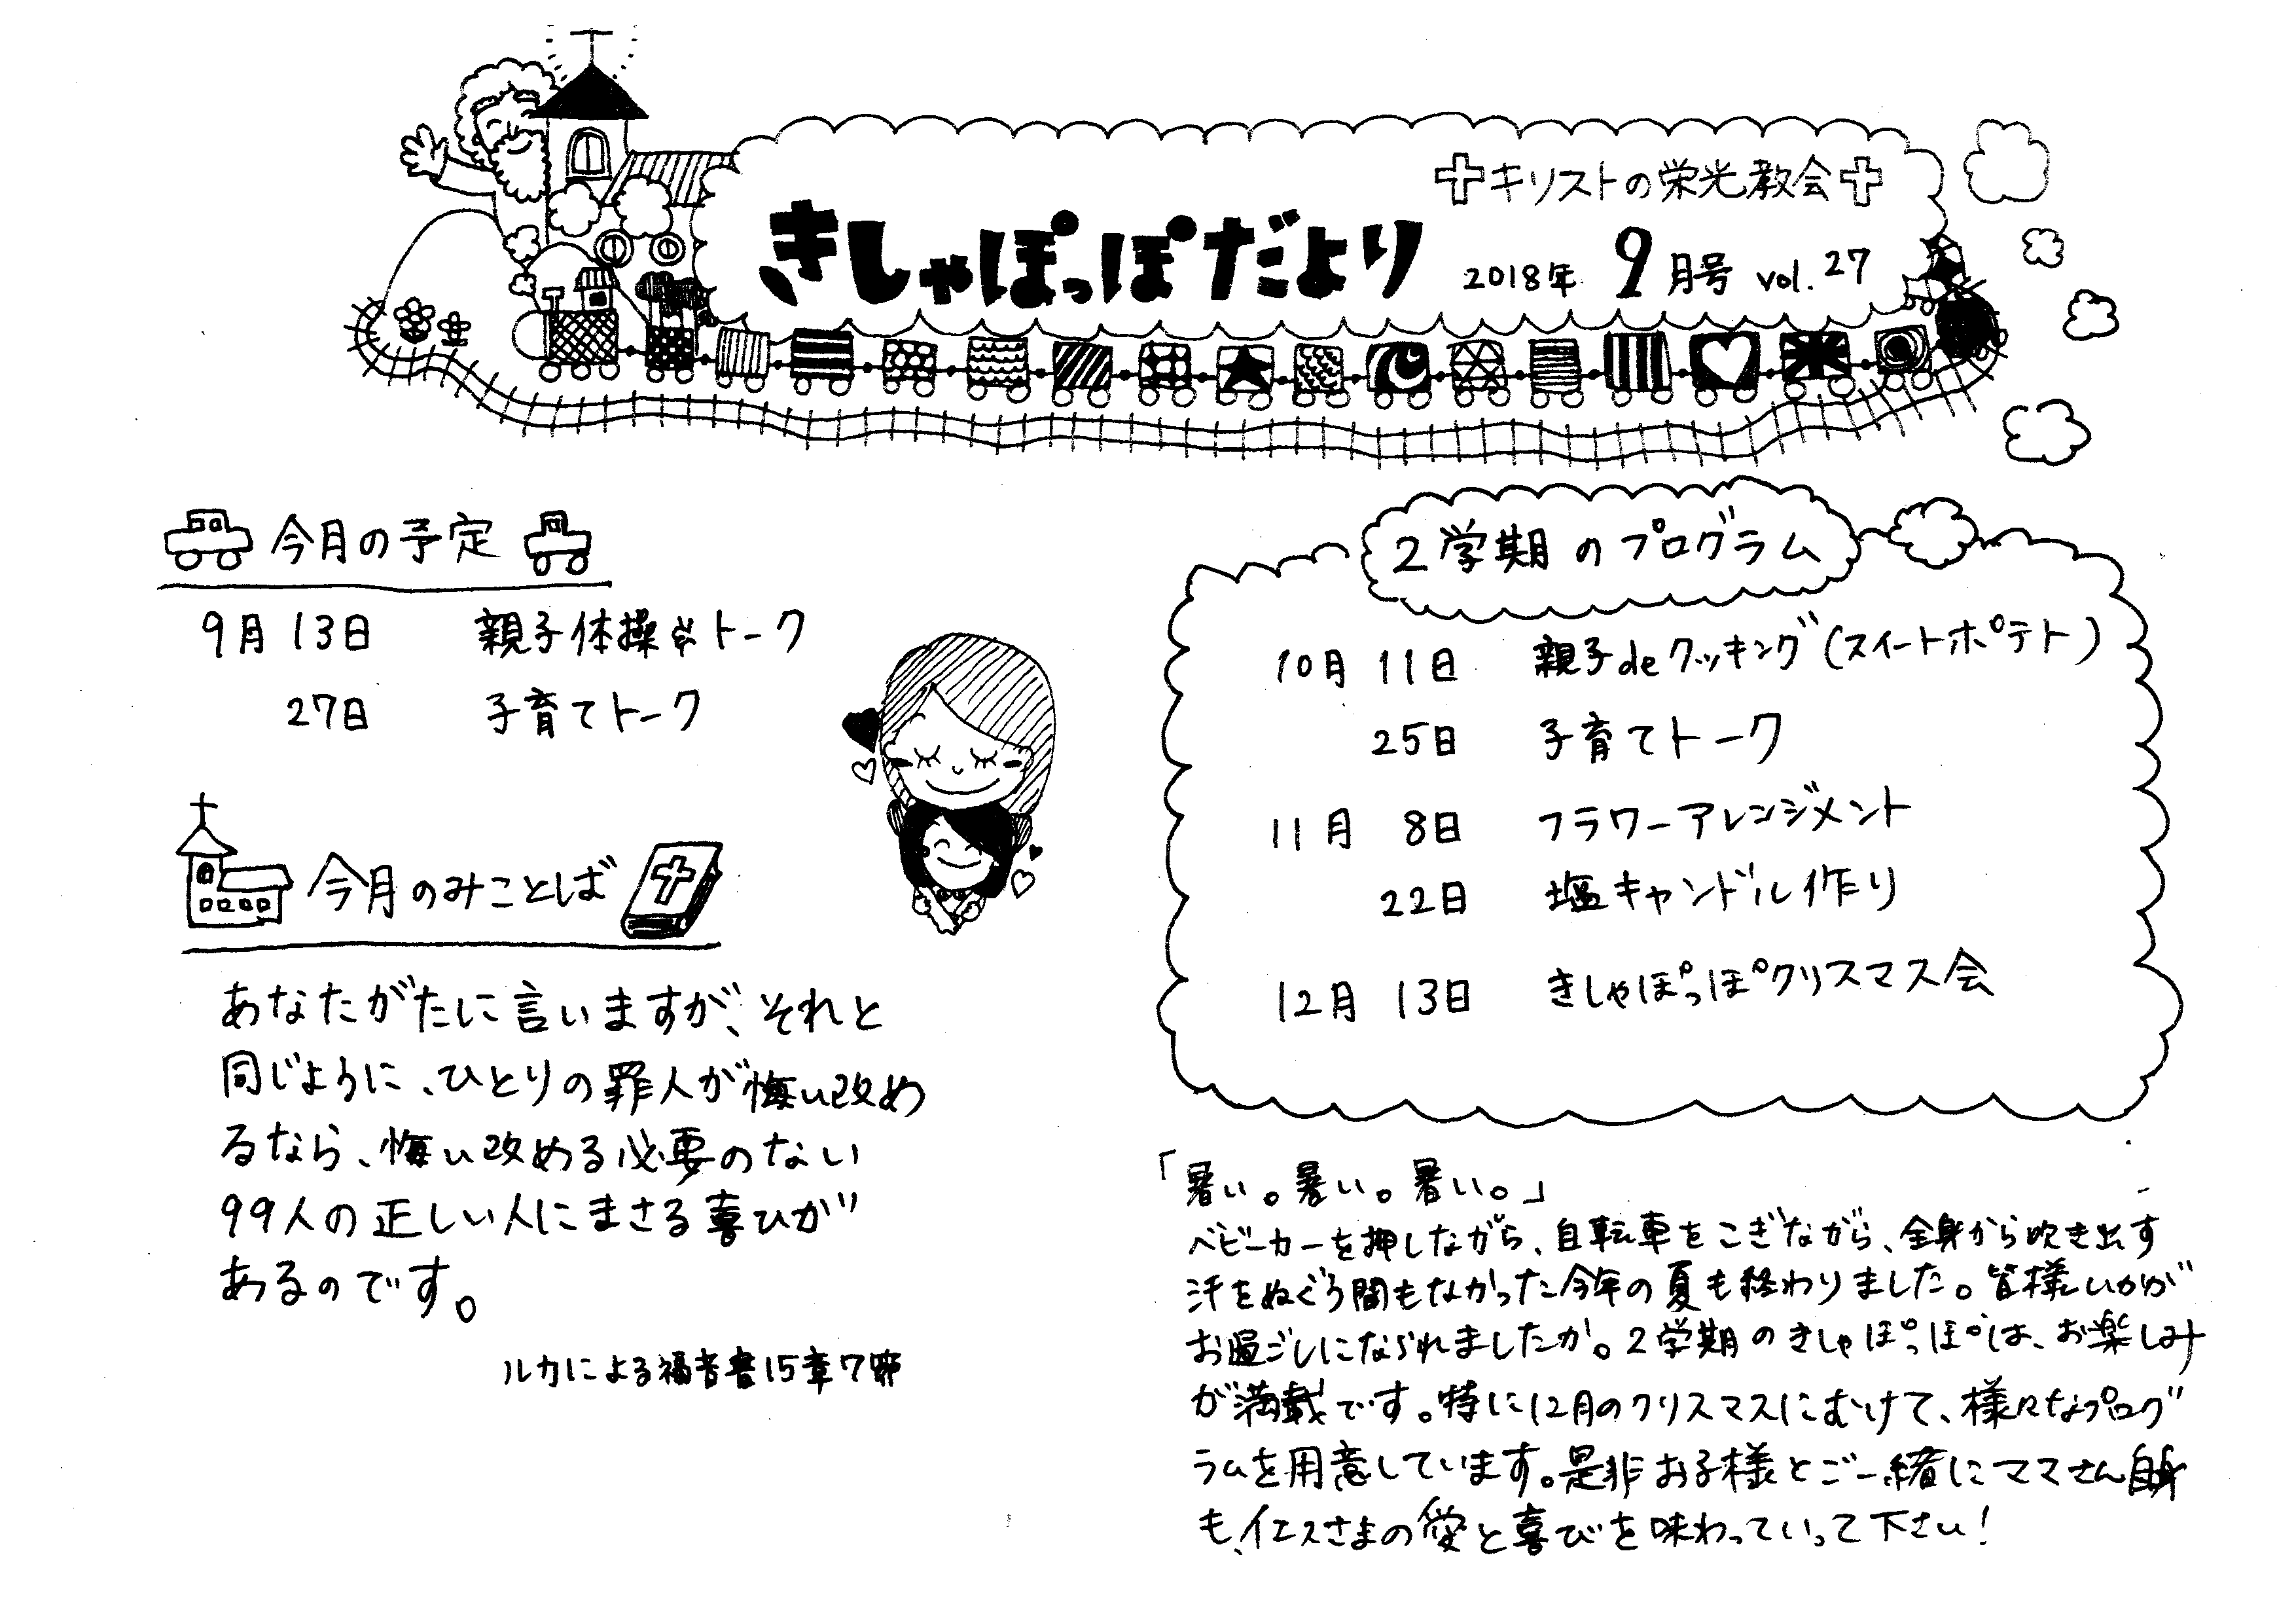 ✝キリストの栄光教会✝
きしゃぽっぽだより
2018年 9月号 vol.27
今月の予定
9月13日 親子体操&トーク
27日 子育てトーク
今月のみことば
あなたがたに言いますが、それと
同じように、ひとりの罪人が悔い改め
るなら、悔い改める必要のない
99人の正しい人にまさる喜びが
あるのです。
ルカによる福音書15章7節
2学期のプログラム
10月11日 親子deクッキング(スイートポテト)
25日 子育てトーク
11月8日 フラワーアレンジメント
22日 塩キャンドル作り
12月13日 きしゃぽっぽクリスマス会
「暑い。暑い。暑い。」
ベビーカーを押しながら、自転車をこぎながら、全身から吹き出す
汗をぬぐう間もなかった今年の夏も終わりました。皆様いかが
お過ごしになられましたか。2学期のきしゃぽっぽは、お楽しみ
が満載です。特に12月のクリスマスにむけて、様々なプログ
ラムを用意しています。是非お子様とご一緒にママさん自身
も、イエスさまの愛と喜びを味わっていって下さい!